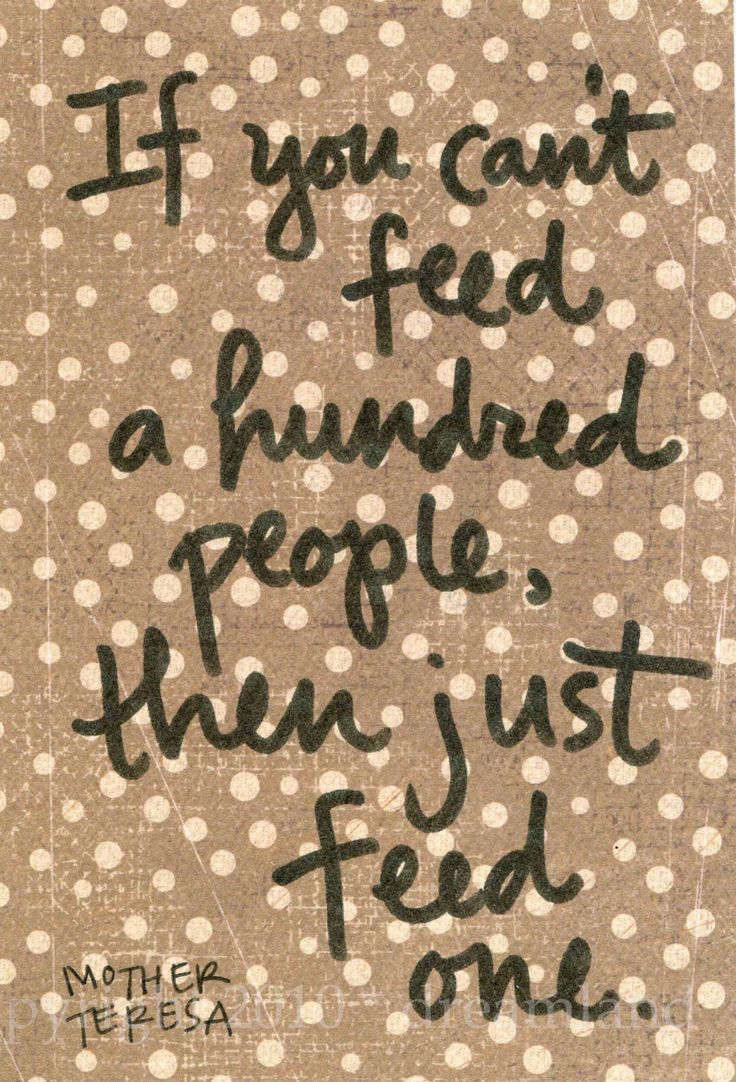 If you can't
feed
a hundred
people,
then just
feed
one.
MOTHER
TERESA
pyright 2010 * dreamland